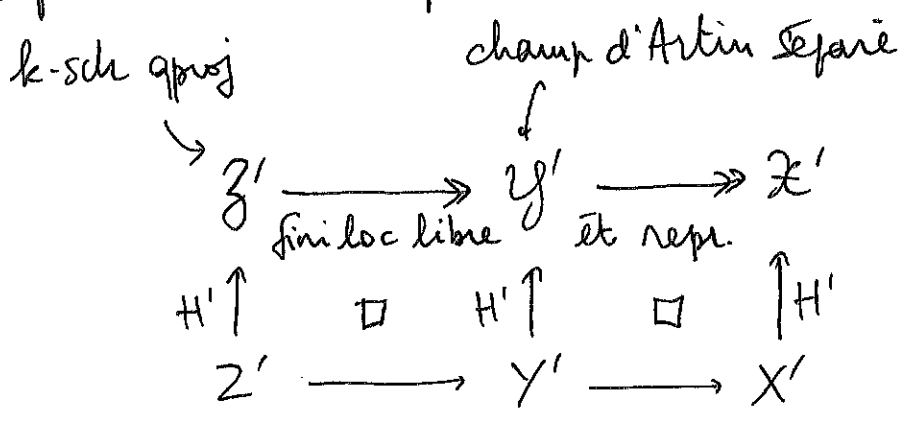 k-sch qproj champ d'Artin séparé
𝒵' 𝒴' 𝒳'
fini loc libre ét repr.
H' □ H' □ H'
Z' Y' X'